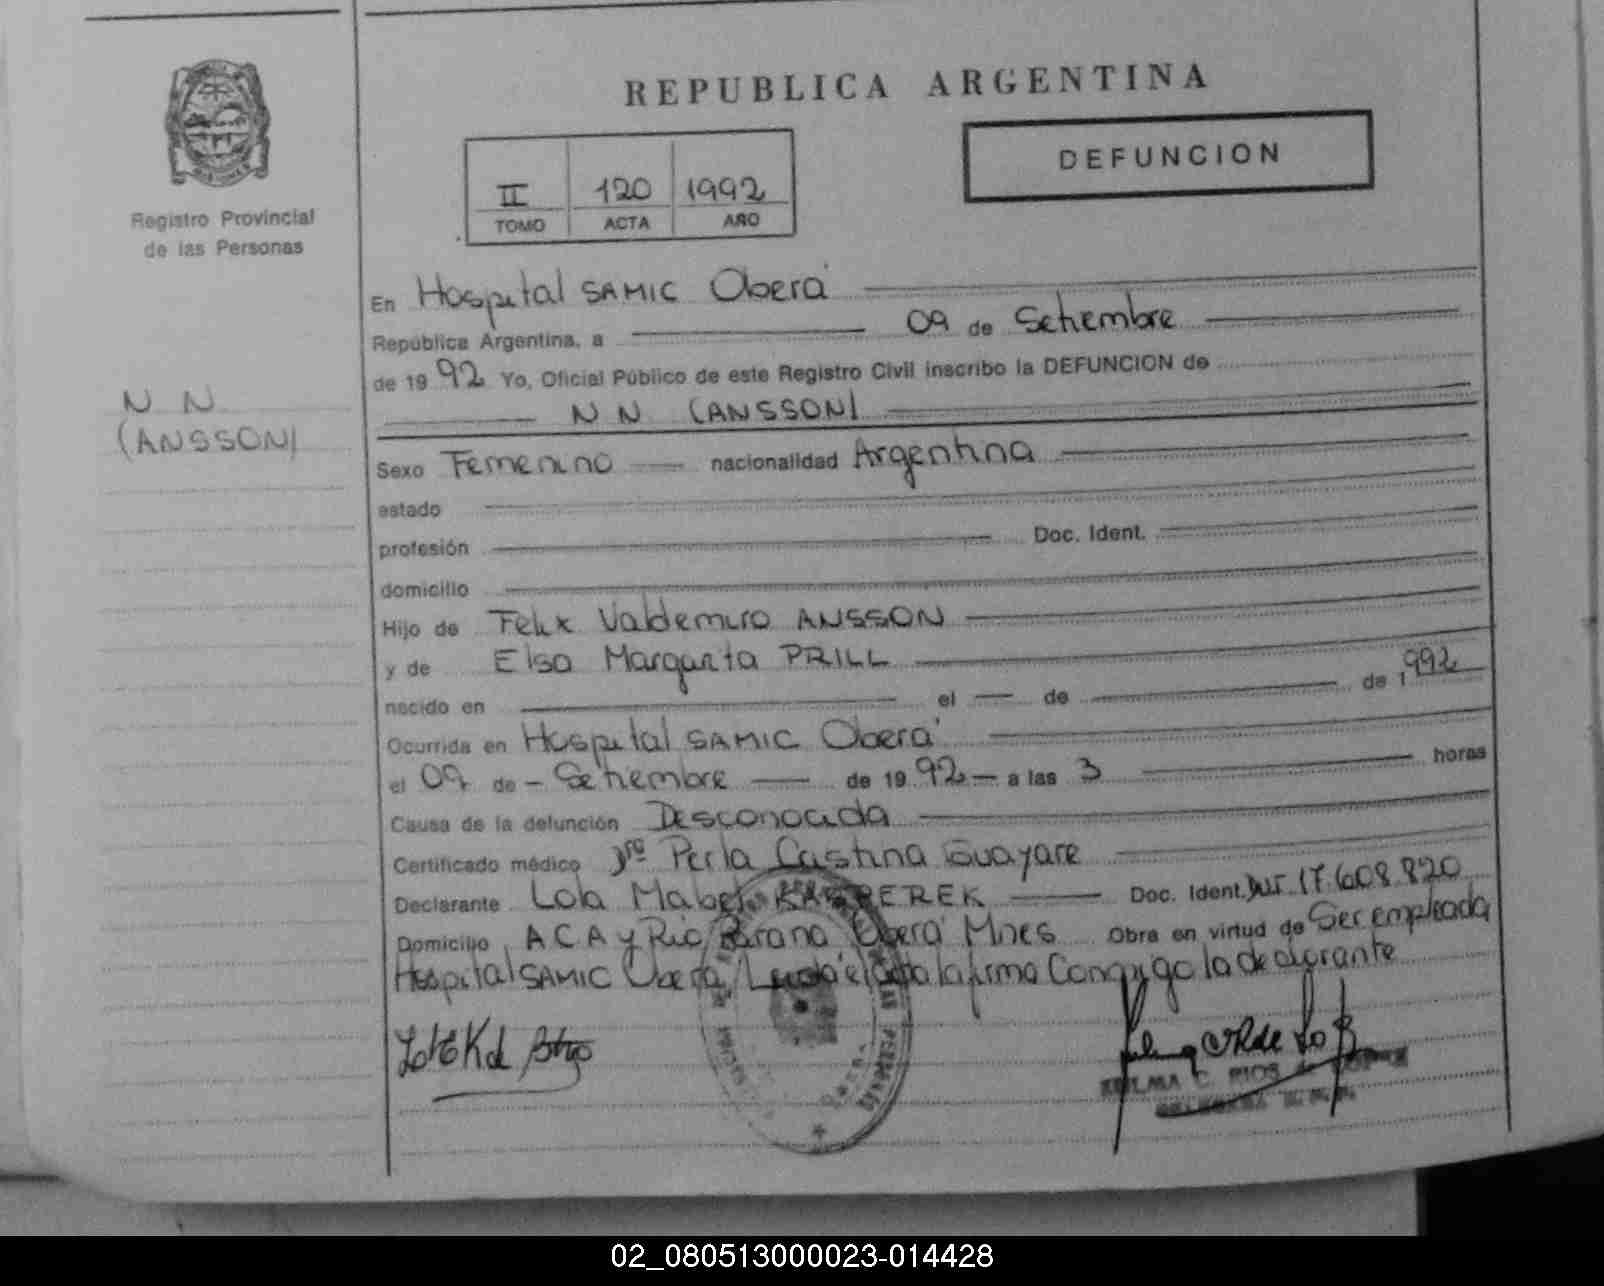 REPUBLICA ARGENTINA
DEFUNCION
II 120 1992
TOMO ACTA AÑO
Registro Provincial
de las Personas
N N
(ANSSON)
En Hospital SAMIC Oberá
República Argentina, a 09 de Setiembre
de 1992 Yo, Oficial Público de este Registro Civil inscribo la DEFUNCION de
N N (ANSSON)
Sexo Femenino nacionalidad Argentina
estado
profesión Doc. Ident.
domicilio
Hijo de Felix Valdemiro ANSSON
y de Elsa Margarita PRILL
nacido en el de de 1992
Ocurrida en Hospital SAMIC Oberá
el 09 de Setiembre de 1992 a las 3 horas
Causa de la defunción Desconocida
Certificado médico Perla Cristina Guayare
Declarante Lola Mabel Doc. Ident. 17.608.820
Domicilio ACA y Rio Parana Oberá Mnes Obra en virtud de Ser empleada
Hospital SAMIC Oberá Leida el acta la firma Conmigo la declarante
ZULMA C. RIOS de
02_080513000023-014428